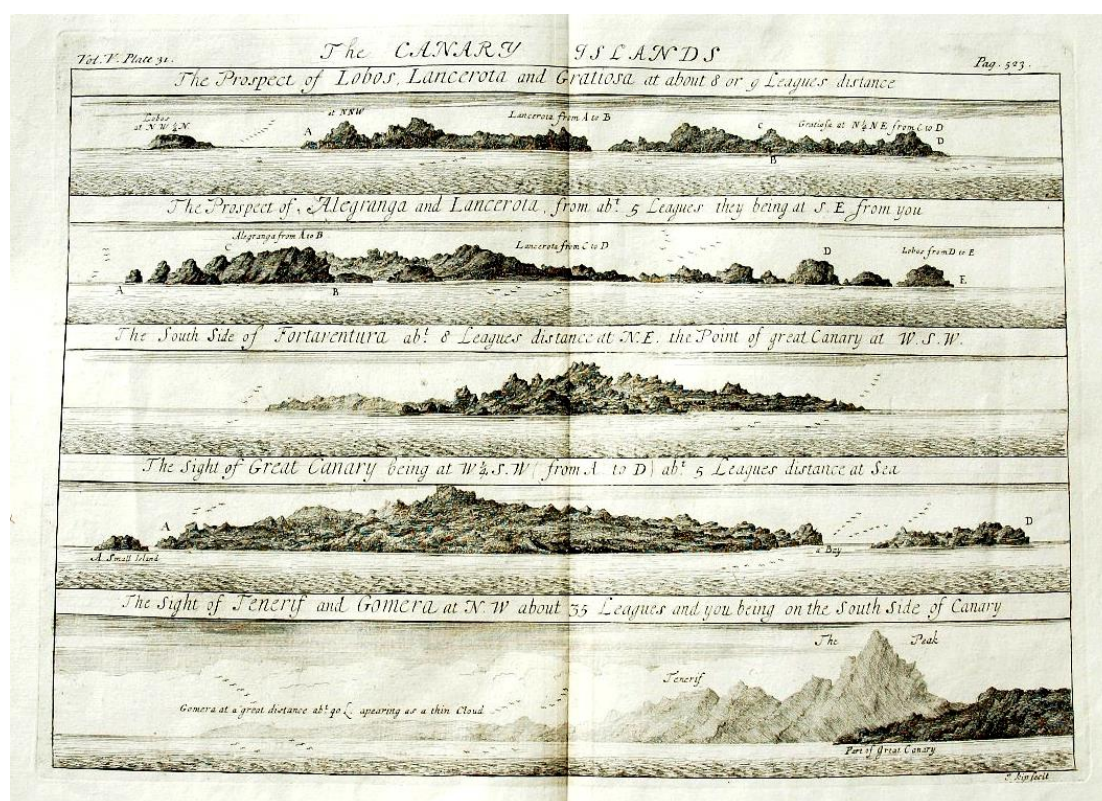 Vol. V. Plate 31.
The CANARY ISLANDS
Pag. 523.
The Prospect of Lobos, Lancerota and Gratiosa at about 8 or 9 Leagues distance
Lobos
at N W ¼ N.
A
at NNW
Lancerota from A to B
C
B
Gratiosa at N ¼ N E from C to D
D
The Prospect of, Alegranga and Lancerota, from abt. 5 Leagues they being at S. E from you
A
C
Alegranga from A to B
B
Lancerota from C to D
D
Lobos from D to E
E
The South Side of Fortaventura abt. 8 Leagues distance at N. E. the Point of great Canary at W. S. W.
The Sight of Great Canary being at W ¼ S. W ( from A to D ) abt. 5 Leagues distance at Sea
A Small Island
A
a Bay
D
The Sight of Tenerif and Gomera at N. W about 35 Leagues and you being on the South Side of Canary
Gomera at a great distance abt. 40 L. apearing as a thin Cloud
Tenerif
The Peak
Part of Great Canary
J. Kip scult